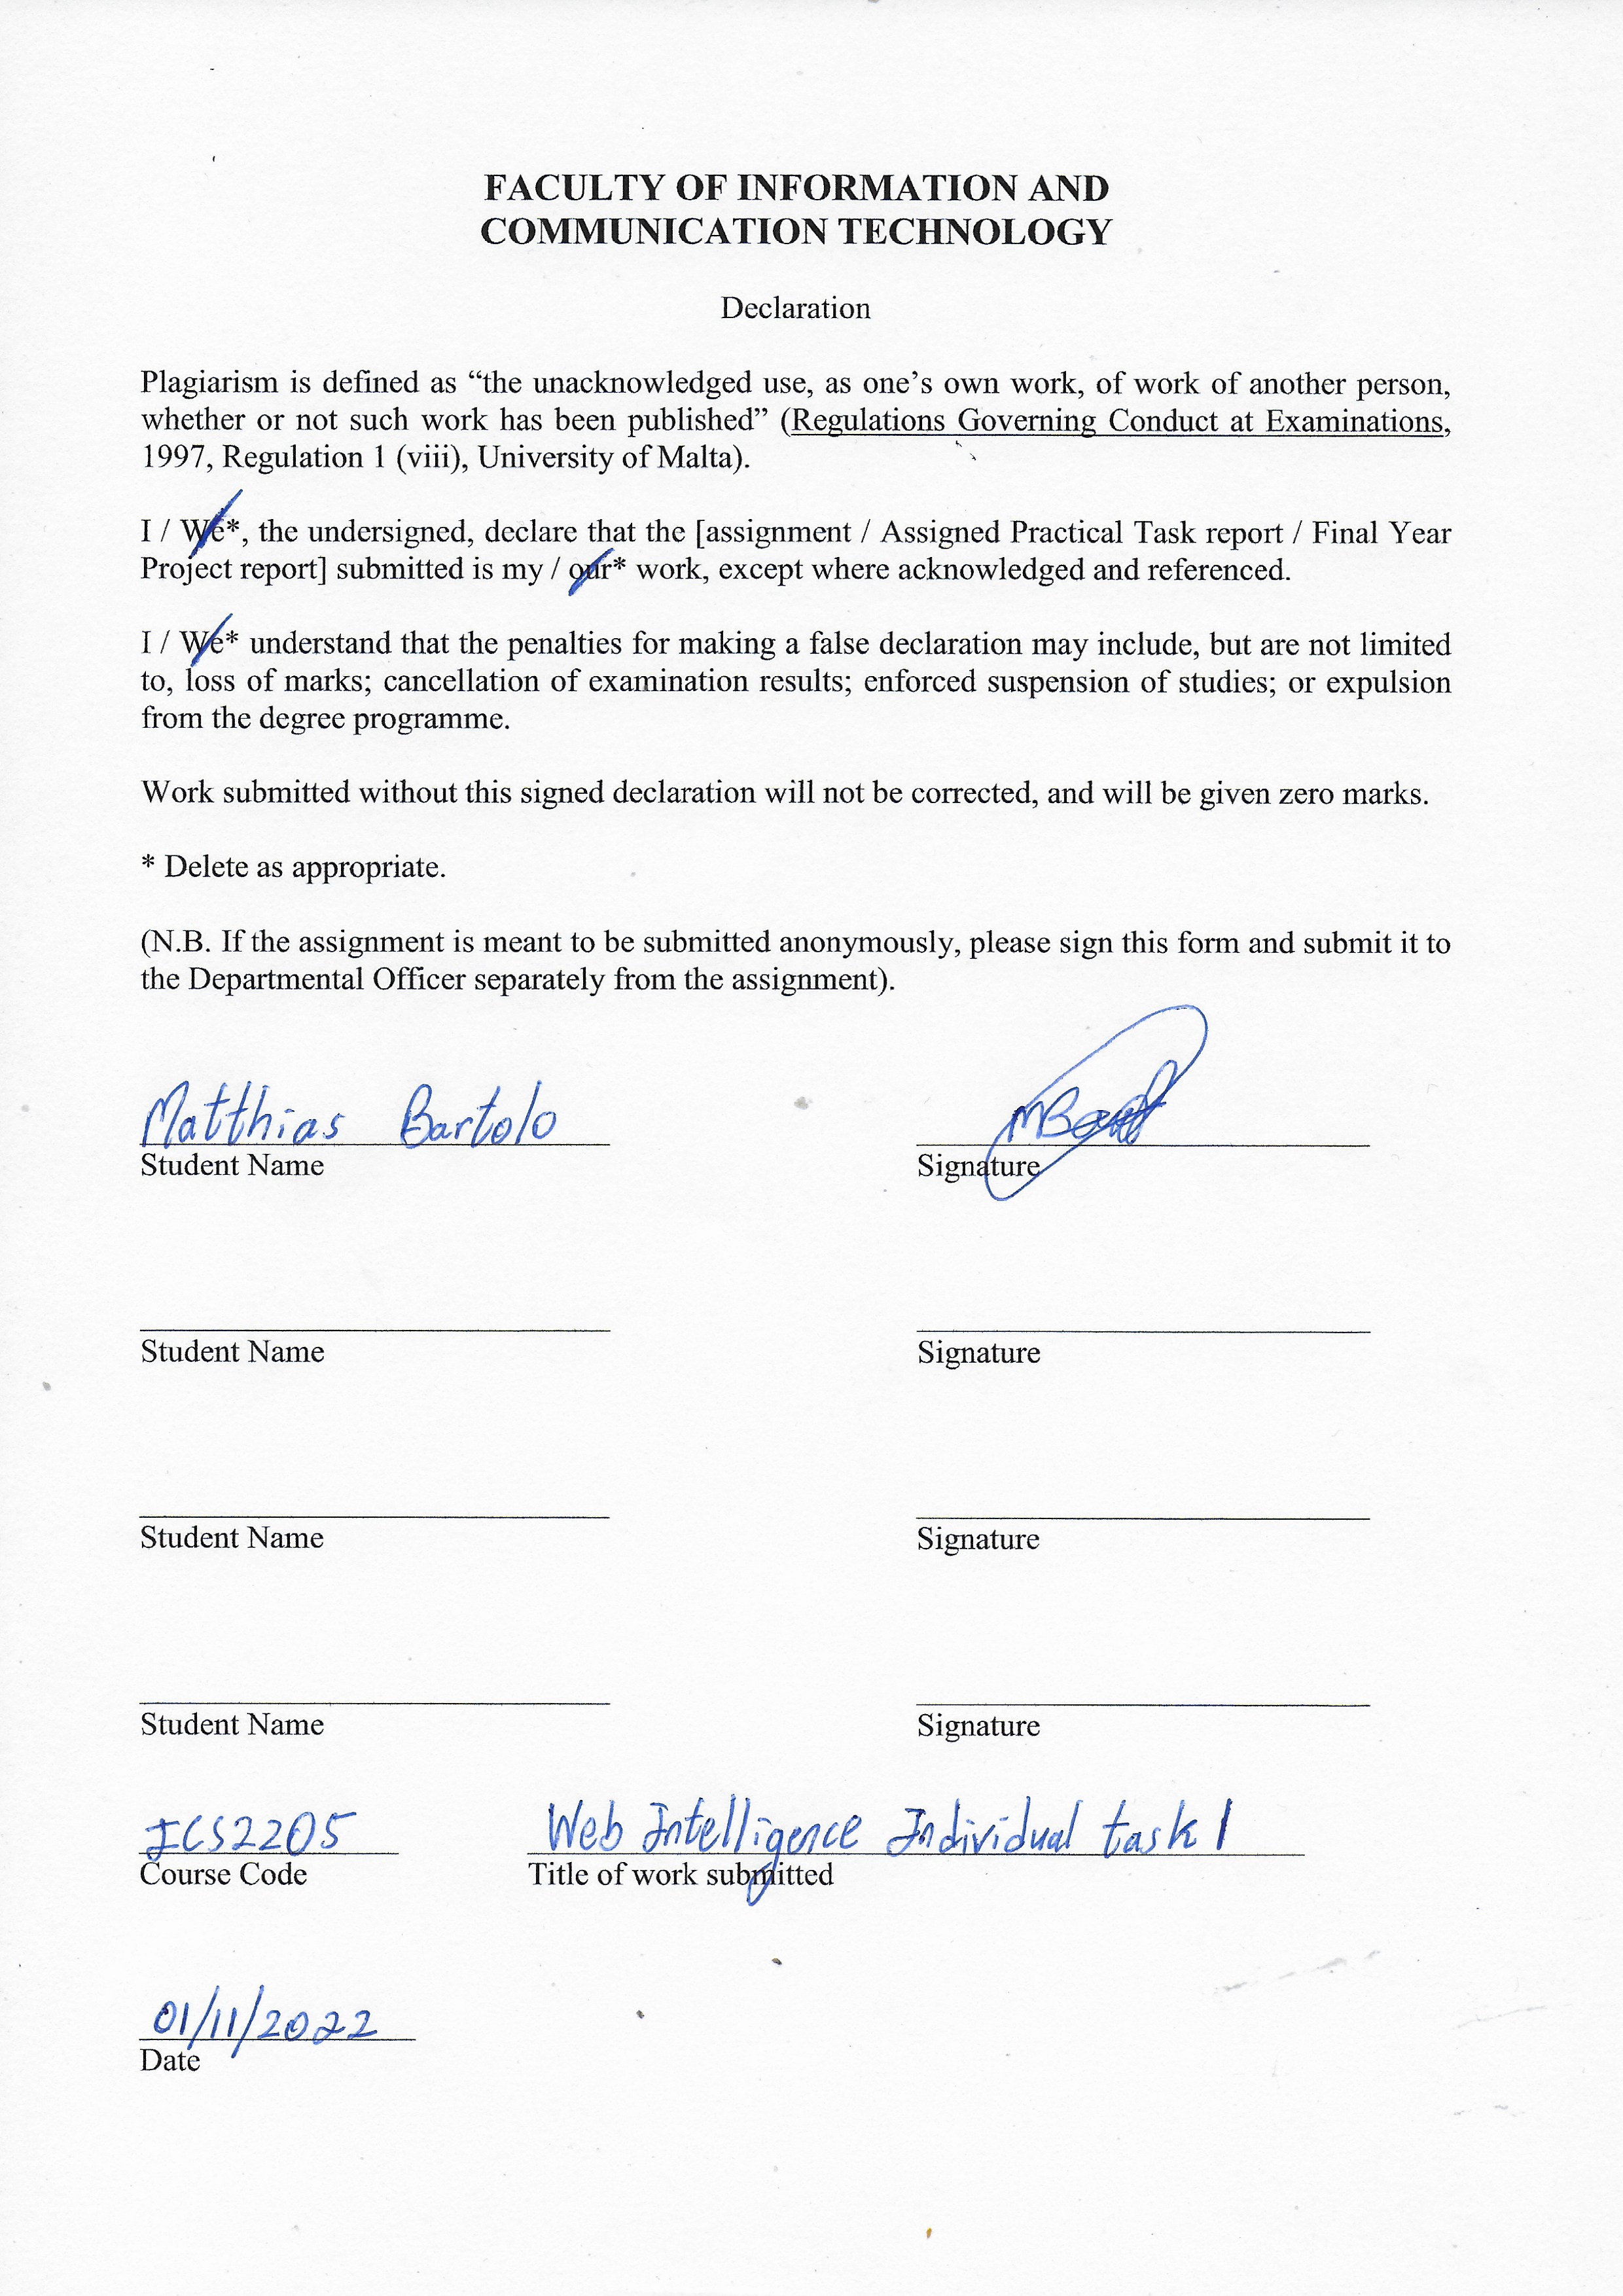 FACULTY OF INFORMATION AND
COMMUNICATION TECHNOLOGY
Declaration
Plagiarism is defined as “the unacknowledged use, as one’s own work, of work of another person,
whether or not such work has been published” (Regulations Governing Conduct at Examinations,
1997, Regulation 1 (viii), University of Malta).
I / We*, the undersigned, declare that the [assignment / Assigned Practical Task report / Final Year
Project report] submitted is my / our* work, except where acknowledged and referenced.
I / We* understand that the penalties for making a false declaration may include, but are not limited
to, loss of marks; cancellation of examination results; enforced suspension of studies; or expulsion
from the degree programme.
Work submitted without this signed declaration will not be corrected, and will be given zero marks.
* Delete as appropriate.
(N.B. If the assignment is meant to be submitted anonymously, please sign this form and submit it to
the Departmental Officer separately from the assignment).
Matthias Bartolo
Student Name Signature
Student Name Signature
Student Name Signature
Student Name Signature
ICS2205 Web Intelligence Individual task 1
Course Code Title of work submitted
01/11/2022
Date